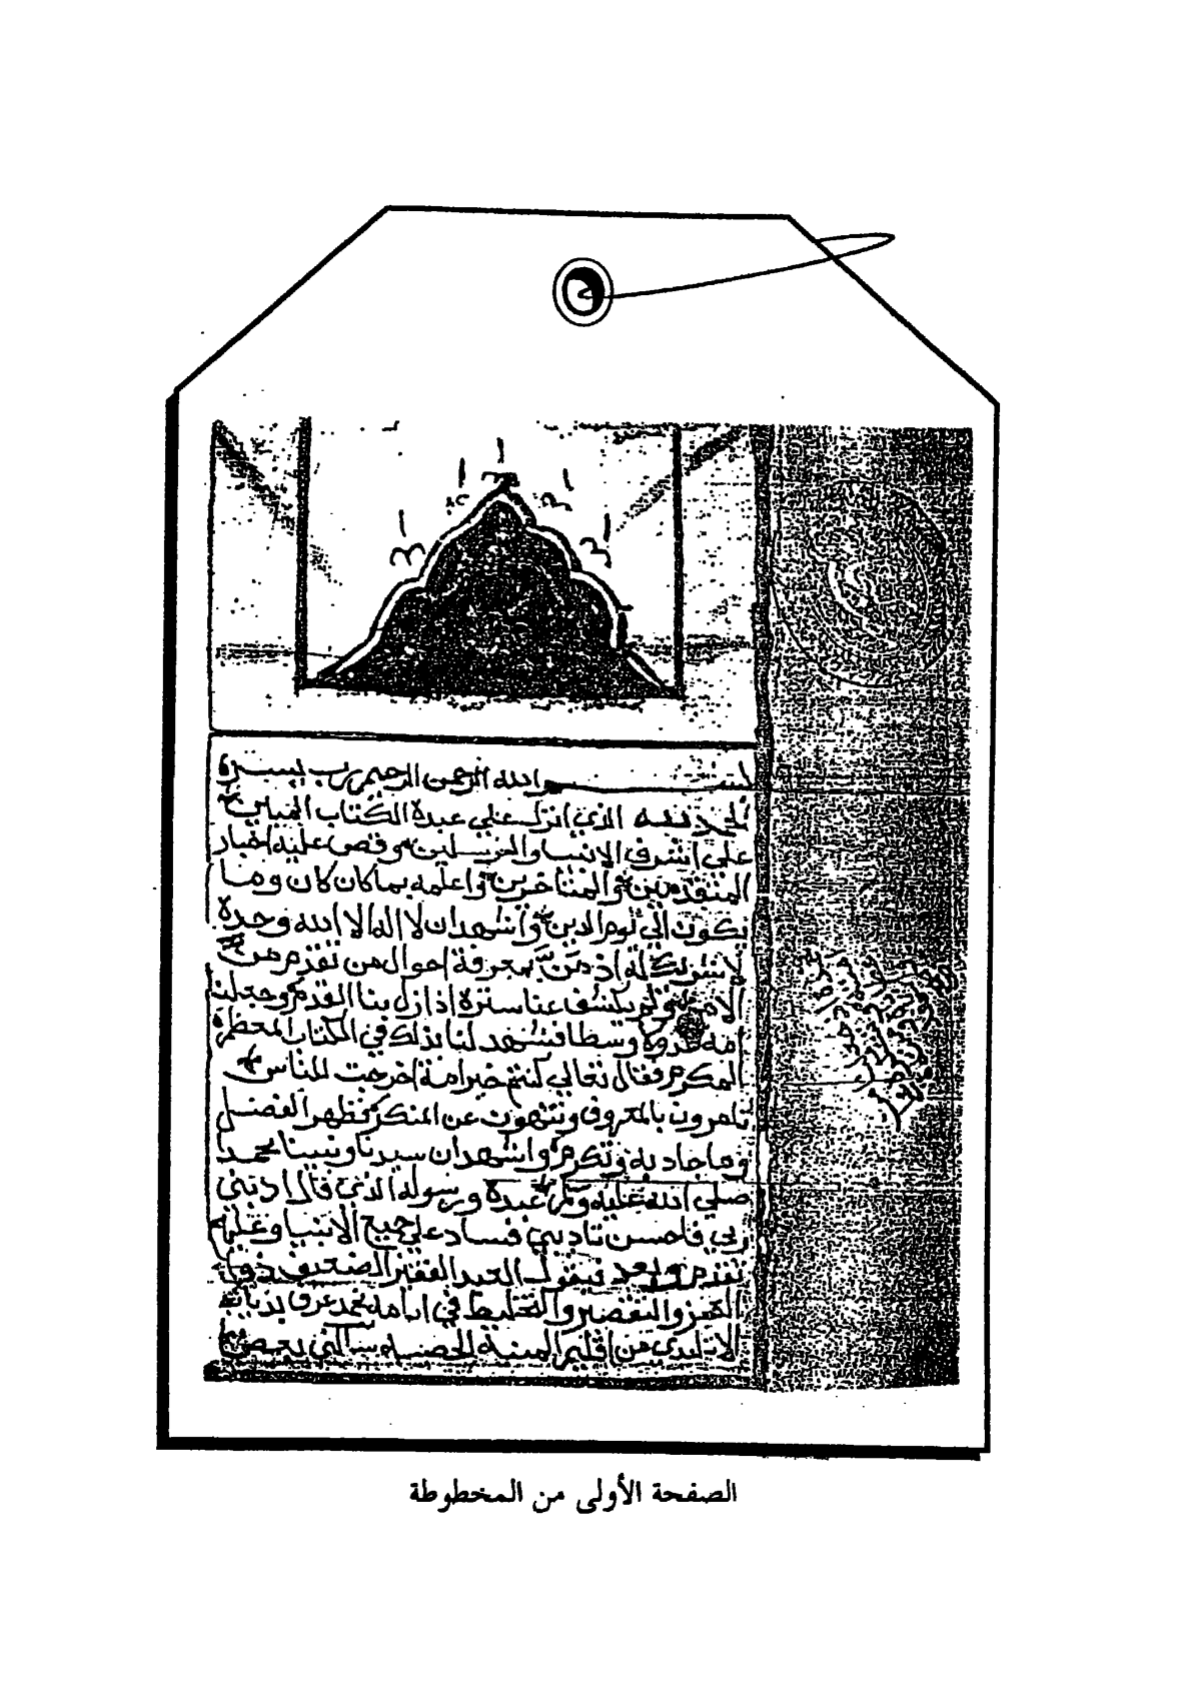 بسم الله الرحمن الرحيم رب يسره
الحمد لله الذي انزل علي عبده الكتاب المبين
علي اشرف الانبيا والمرسلين وقص عليه اخبار
المتقدمين والمتاخرين واعلمه بما كان كان وما
يكون الي يوم الدين واشهد ان لا اله الا الله وحده
لا شريك له اذ من بمعرفة احوال من تقدم من
الامم ولم يكشف عنا ستره اذا زل بنا القدم وجعلنا
امة وسطا فشهد لنا بذلك في الكتاب المعظم
المكرم فقال تعالي كنتم خير امة اخرجت للناس
تامرون بالمعروف وتنهون عن المنكر فظهر الفضل
وما جاد به وتكرم واشهد ان سيدنا ونبينا محمدا
صلي الله عليه وسلم عبده ورسوله الذي قال ادبني
ربي فاحسن تاديبي فساد علي جميع الانبيا وعليهم
تقدم وبعد فيقول العبد الفقير الضعيف ذو
العجز والتقصير والتخليط في ايامه محمد دياب
الاتليدي من اقليم المنية الخصيبه سالني بعض
الصفحة الأولى من المخطوطة